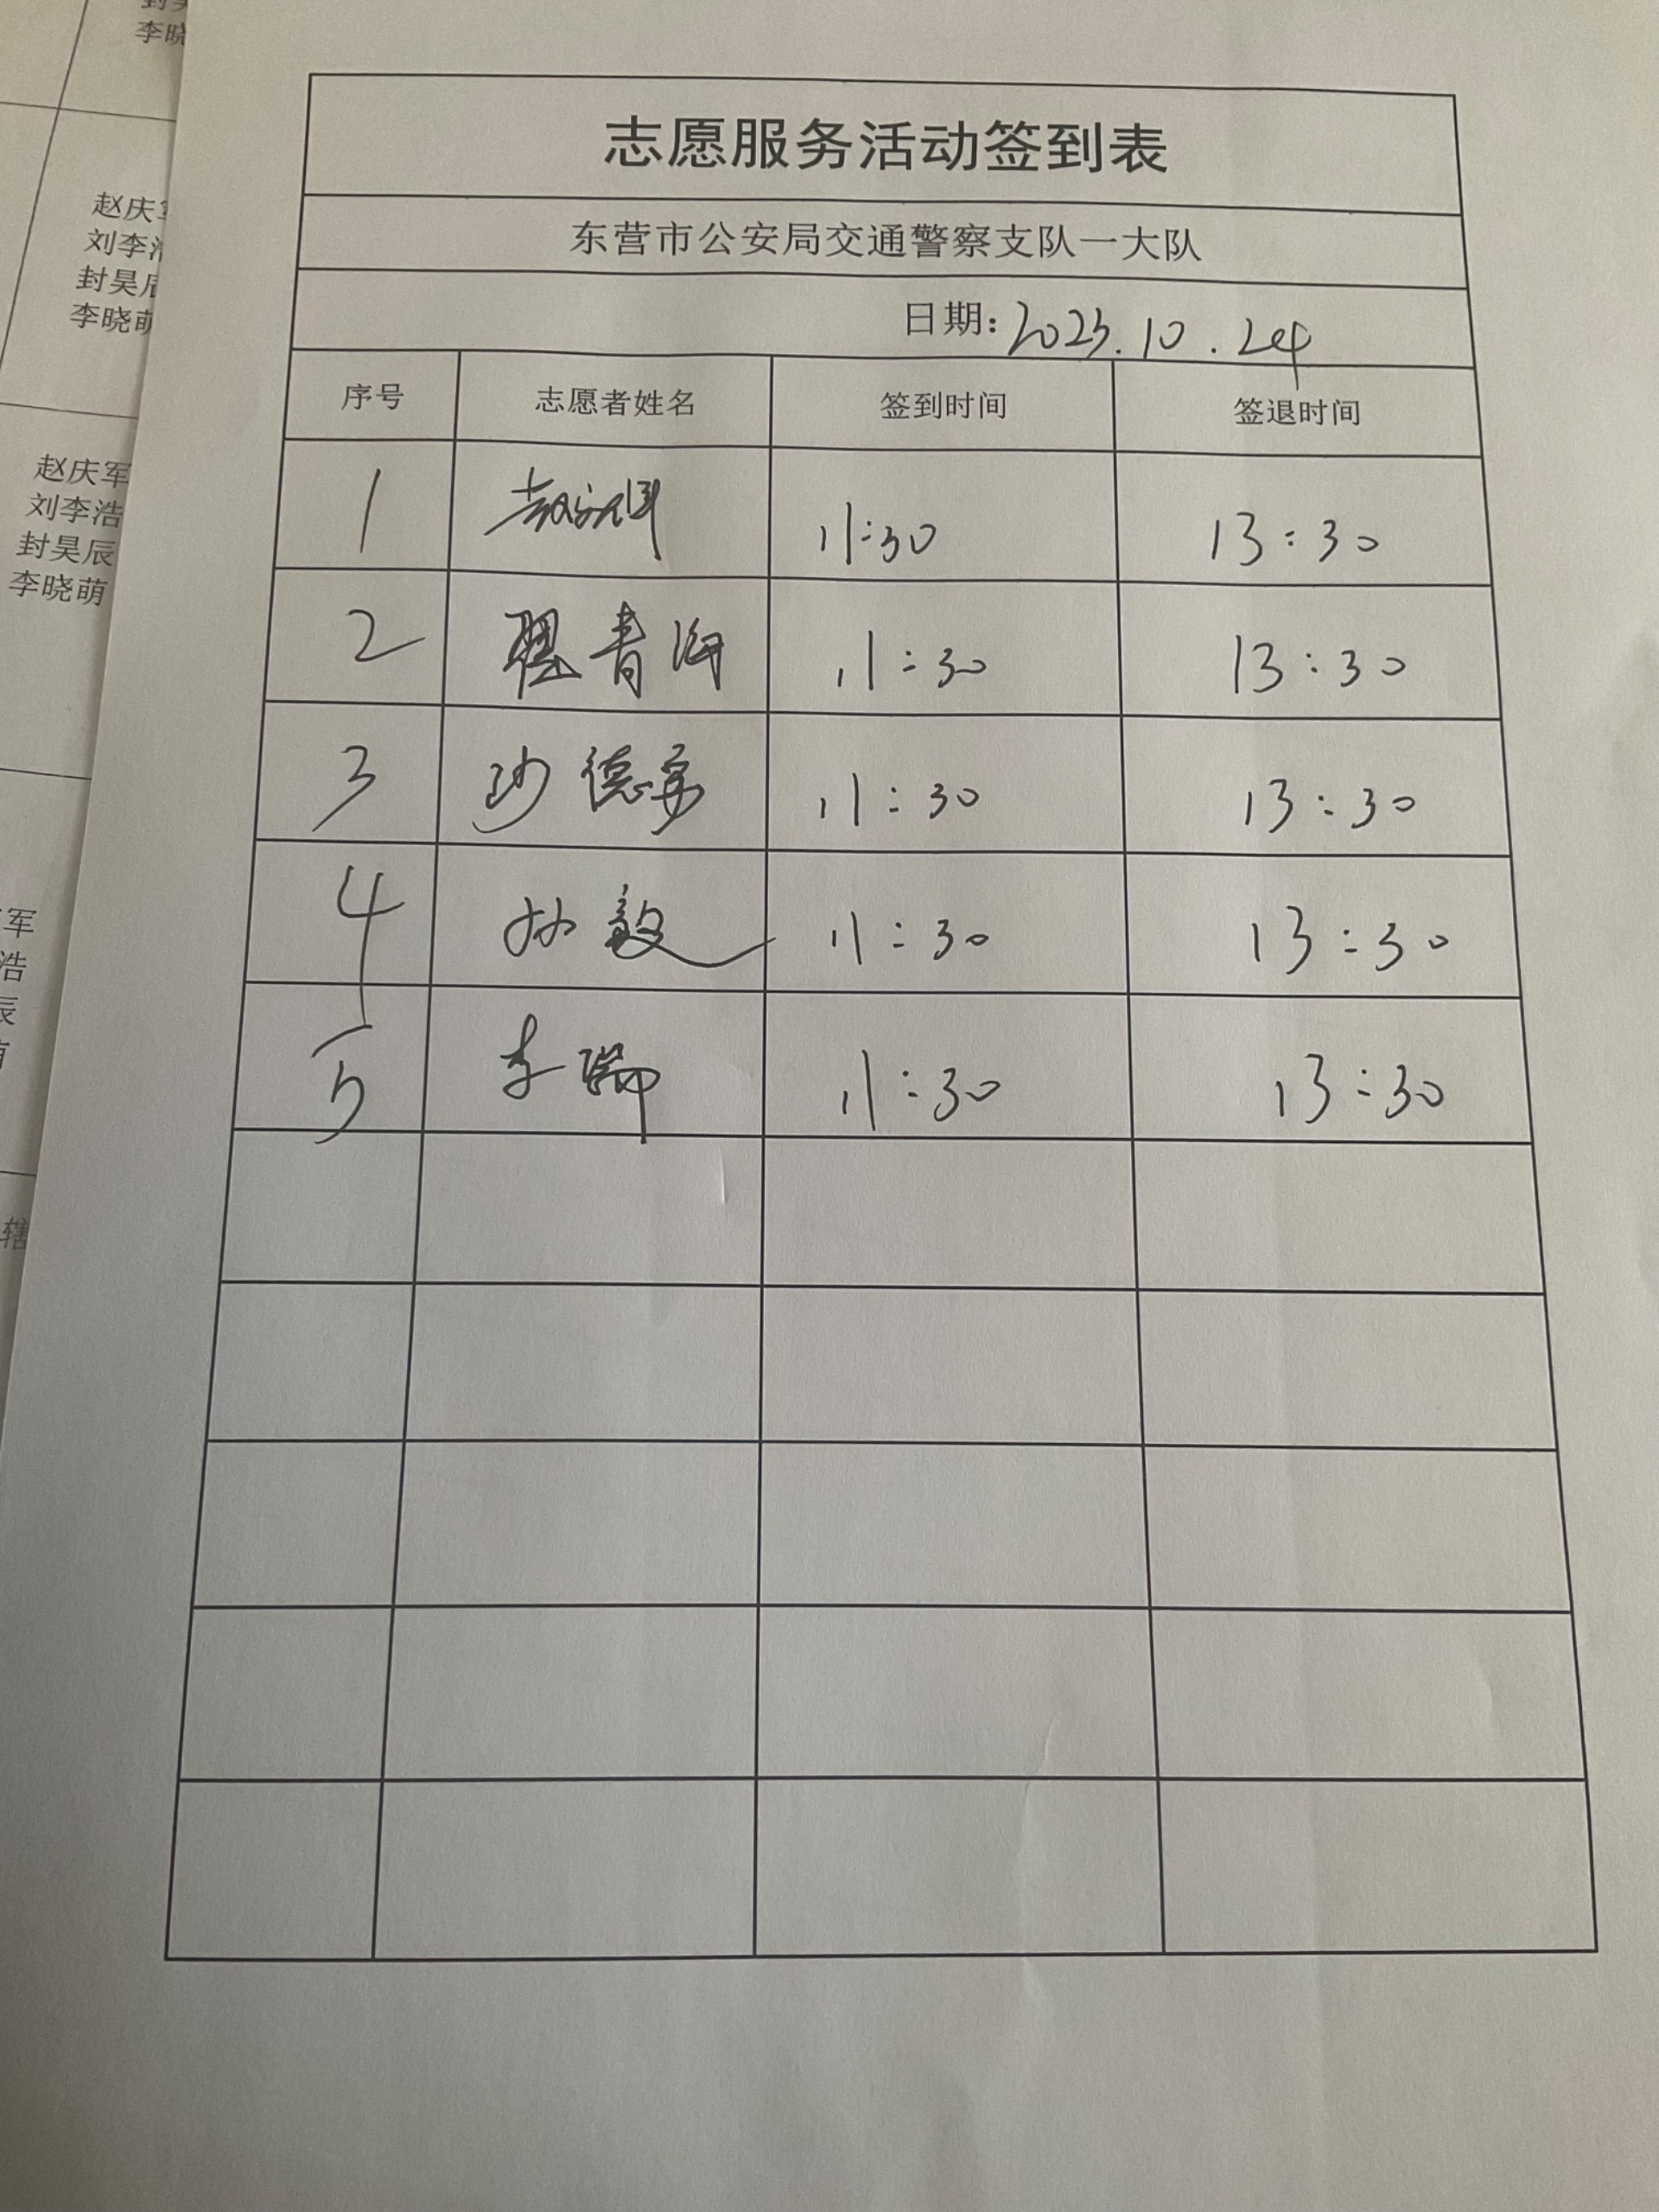 李晓
赵庆军
刘李浩
封昊辰
李晓萌
赵庆军
刘李浩
封昊辰
李晓萌
军
浩
辰
辖
志愿服务活动签到表
东营市公安局交通警察支队一大队
日期：2023.10.24
序号 志愿者姓名 签到时间 签退时间
1 11:30 13:30
2 青海 11:30 13:30
3 德 11:30 13:30
4 孙毅 11:30 13:30
5 李瑞 11:30 13:30